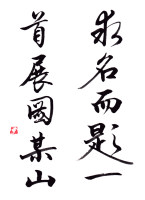 求名而题一
首展图某山